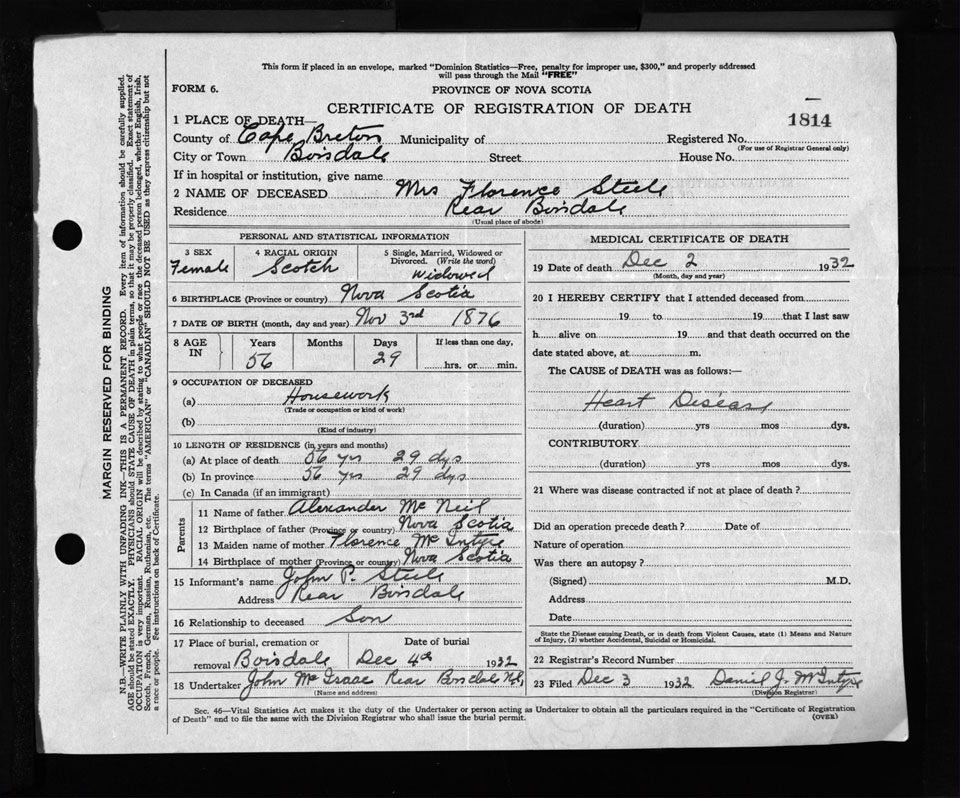 This form if placed in an envelope, marked "Dominion Statistics—Free, penalty for improper use, $300," and properly addressed
will pass through the Mail "FREE"
FORM 6.
PROVINCE OF NOVA SCOTIA
CERTIFICATE OF REGISTRATION OF DEATH
1814
1 PLACE OF DEATH—
County of Cape Breton Municipality of Registered No.
(For use of Registrar General only)
City or Town Boisdale Street House No.
If in hospital or institution, give name
2 NAME OF DECEASED Mrs Florence Steele
Residence Rear Boisdale
(Usual place of abode)
PERSONAL AND STATISTICAL INFORMATION
3 SEX Female
4 RACIAL ORIGIN Scotch
5 Single, Married, Widowed or
Divorced. (Write the word)
widowed
6 BIRTHPLACE (Province or country) Nova Scotia
7 DATE OF BIRTH (month, day and year) Nov 3rd 1876
8 AGE IN
Years Months Days If less than one day,
56 29 hrs. or min.
9 OCCUPATION OF DECEASED
(a) Housework
(Trade or occupation or kind of work)
(b)
(Kind of industry)
10 LENGTH OF RESIDENCE (in years and months)
(a) At place of death 56 yrs 29 dys
(b) In province 56 yrs 29 dys
(c) In Canada (if an immigrant)
Parents
11 Name of father Alexander Mc Neil
12 Birthplace of father (Province or country) Nova Scotia
13 Maiden name of mother Florence Mc Intyre
14 Birthplace of mother (Province or country) Nova Scotia
15 Informant's name John P. Steele
Address Rear Boisdale
16 Relationship to deceased Son
17 Place of burial, cremation or Date of burial
removal Boisdale Dec 4th 1932
18 Undertaker John Mc Isaac Rear Boisdale N.S.
(Name and address)
MEDICAL CERTIFICATE OF DEATH
19 Date of death Dec 2 1932
(Month, day and year)
20 I HEREBY CERTIFY that I attended deceased from
19 to 19 that I last saw
h alive on 19 and that death occurred on the
date stated above, at m.
The CAUSE of DEATH was as follows:—
Heart Disease
(duration) yrs mos dys.
CONTRIBUTORY
(duration) yrs mos dys.
21 Where was disease contracted if not at place of death ?
Did an operation precede death ? Date of
Nature of operation
Was there an autopsy ?
(Signed) M.D.
Address
Date
State the Disease causing Death, or in death from Violent Causes, state (1) Means and Nature
of Injury, (2) whether Accidental, Suicidal or Homicidal.
22 Registrar's Record Number
23 Filed Dec 3 1932 Daniel J. McIntyre
(Division Registrar)
Sec. 46—Vital Statistics Act makes it the duty of the Undertaker or person acting as Undertaker to obtain all the particulars required in the "Certificate of Registration
of Death" and to file the same with the Division Registrar who shall issue the burial permit.
(OVER)
MARGIN RESERVED FOR BINDING
N.B.—WRITE PLAINLY WITH UNFADING INK—THIS IS A PERMANENT RECORD. Every item of information should be carefully supplied.
AGE should be stated EXACTLY. PHYSICIANS should STATE CAUSE OF DEATH in plain terms, so that it may be properly classified. Exact statement of
OCCUPATION is very important. RACIAL ORIGIN will be described by stating to what people or race the deceased person belonged, whether English, Irish,
Scotch, French, German, Russian, Ruthenian, etc. The terms "AMERICAN" or "CANADIAN" SHOULD NOT BE USED as they express citizenship but not
a race or people. See instructions on back of Certificate.